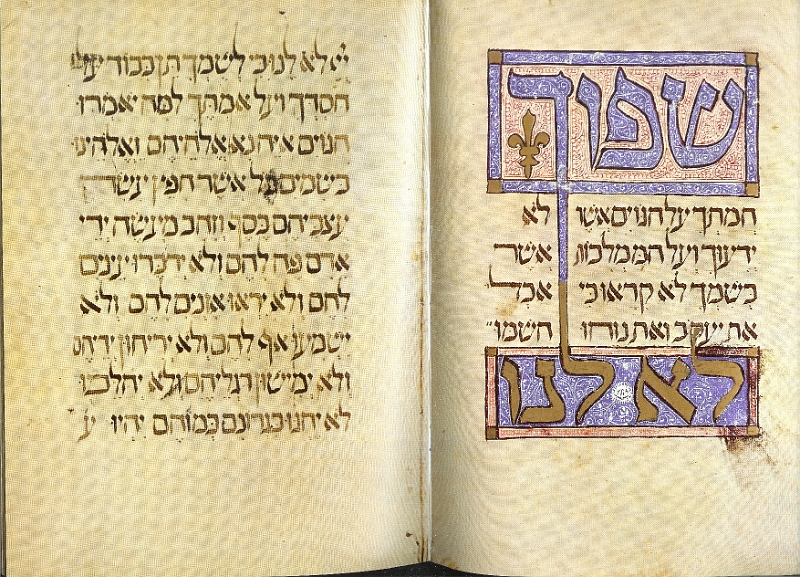 שפוך
חמתך על הגוים אשר לא
ידעוך ועל הממלכות אשר
בשמך לא קראו כי אכל
את יעקב ואת נוהו השמו
לא לנו
יי לא לנו כי לשמך תן כבוד על
חסדך ועל אמתך למה יאמרו
הגוים איה נא אלהיהם ואלהינו
בשמים כל אשר חפץ עשה
עצביהם כסף וזהב מעשה ידי
אדם פה להם ולא ידברו עינים
להם ולא יראו אזנים להם ולא
ישמעו אף להם ולא יריחון ידיהם
ולא ימישון רגליהם ולא יהלכו
לא יהגו בגרונם כמוהם יהיו ע